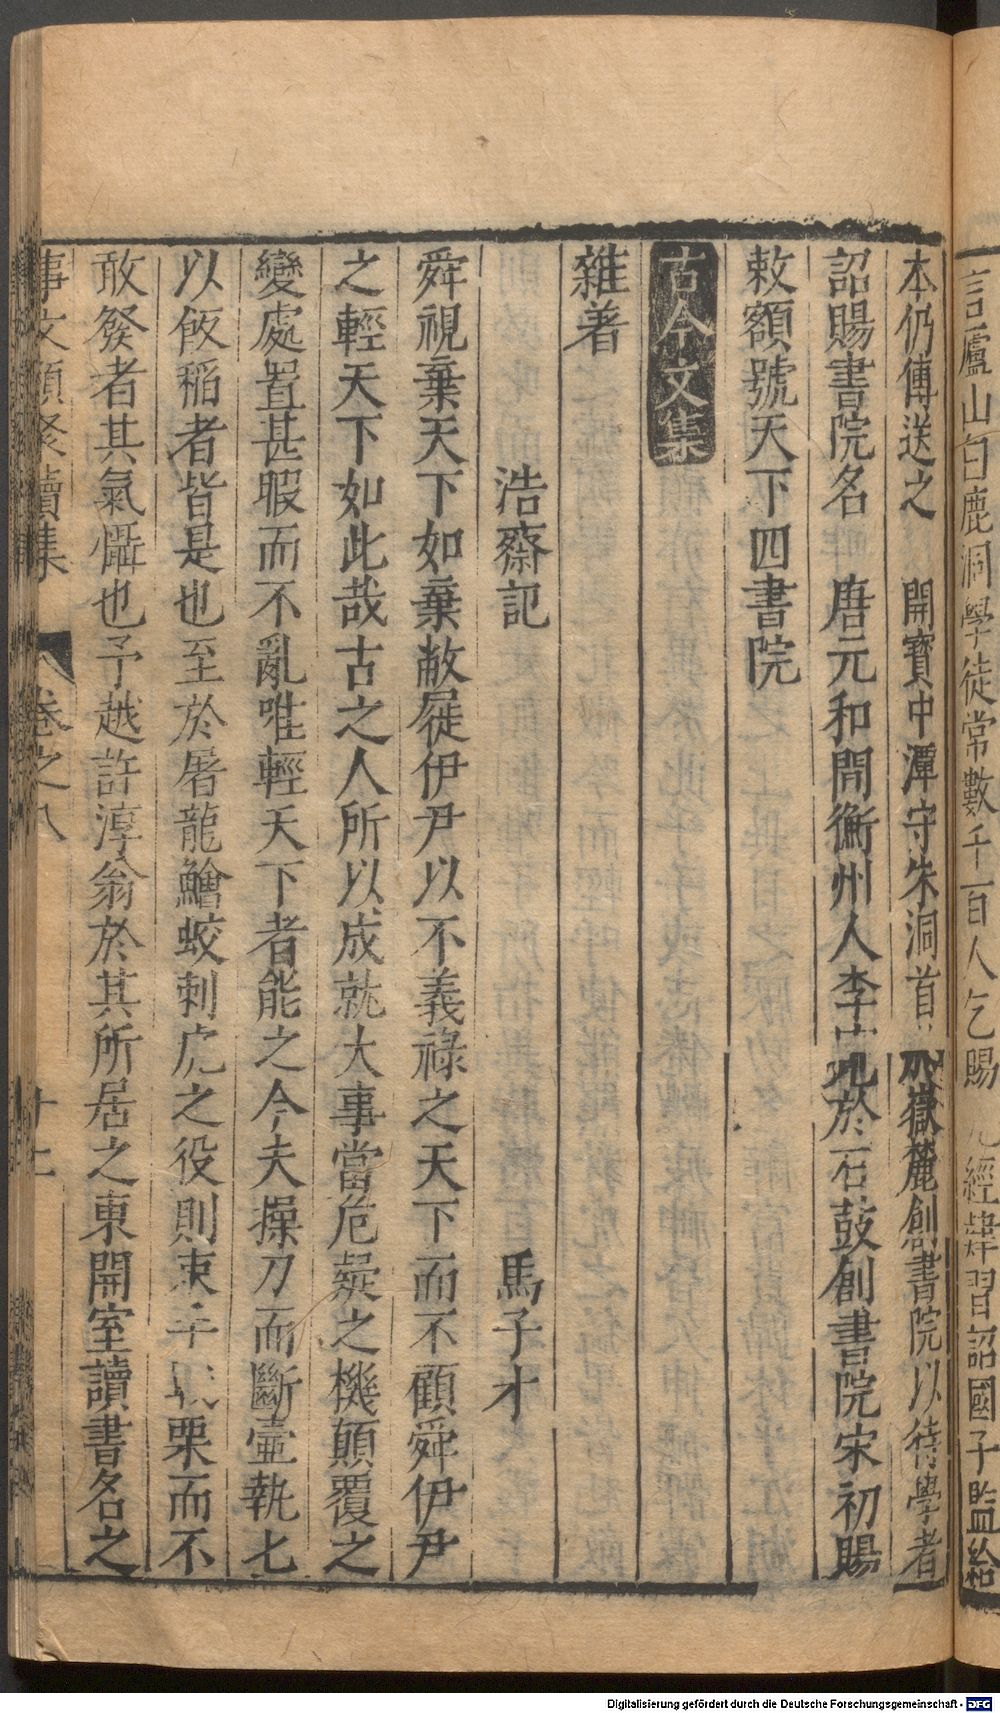 言廬山白鹿洞學徒常數千百人乞賜九經肄習詔國子監給
本仍傳送之　開寶中潭守朱洞首於嶽麓創書院以待學者
詔賜書院名　唐元和間衡州人李寬於石鼓創書院宋初賜
敕額號天下四書院
古今文集
雜著
浩齋記　馬子才
舜視棄天下如棄敝屣伊尹以不義祿之天下而不顧舜伊尹
之輕天下如此哉古之人所以成就大事當危疑之機顛覆之
變處置甚暇而不亂唯輕天下者能之今夫操刀而斷壷執七
以飯稻者皆是也至於屠龍鱠蛟刺虎之役則束手戰栗而不
敢發者其氣懾也予越許淳翁於其所居之東開室讀書名之
事文類聚續集　卷之八　十二
Digitalisierung gefördert durch die Deutsche Forschungsgemeinschaft - DFG